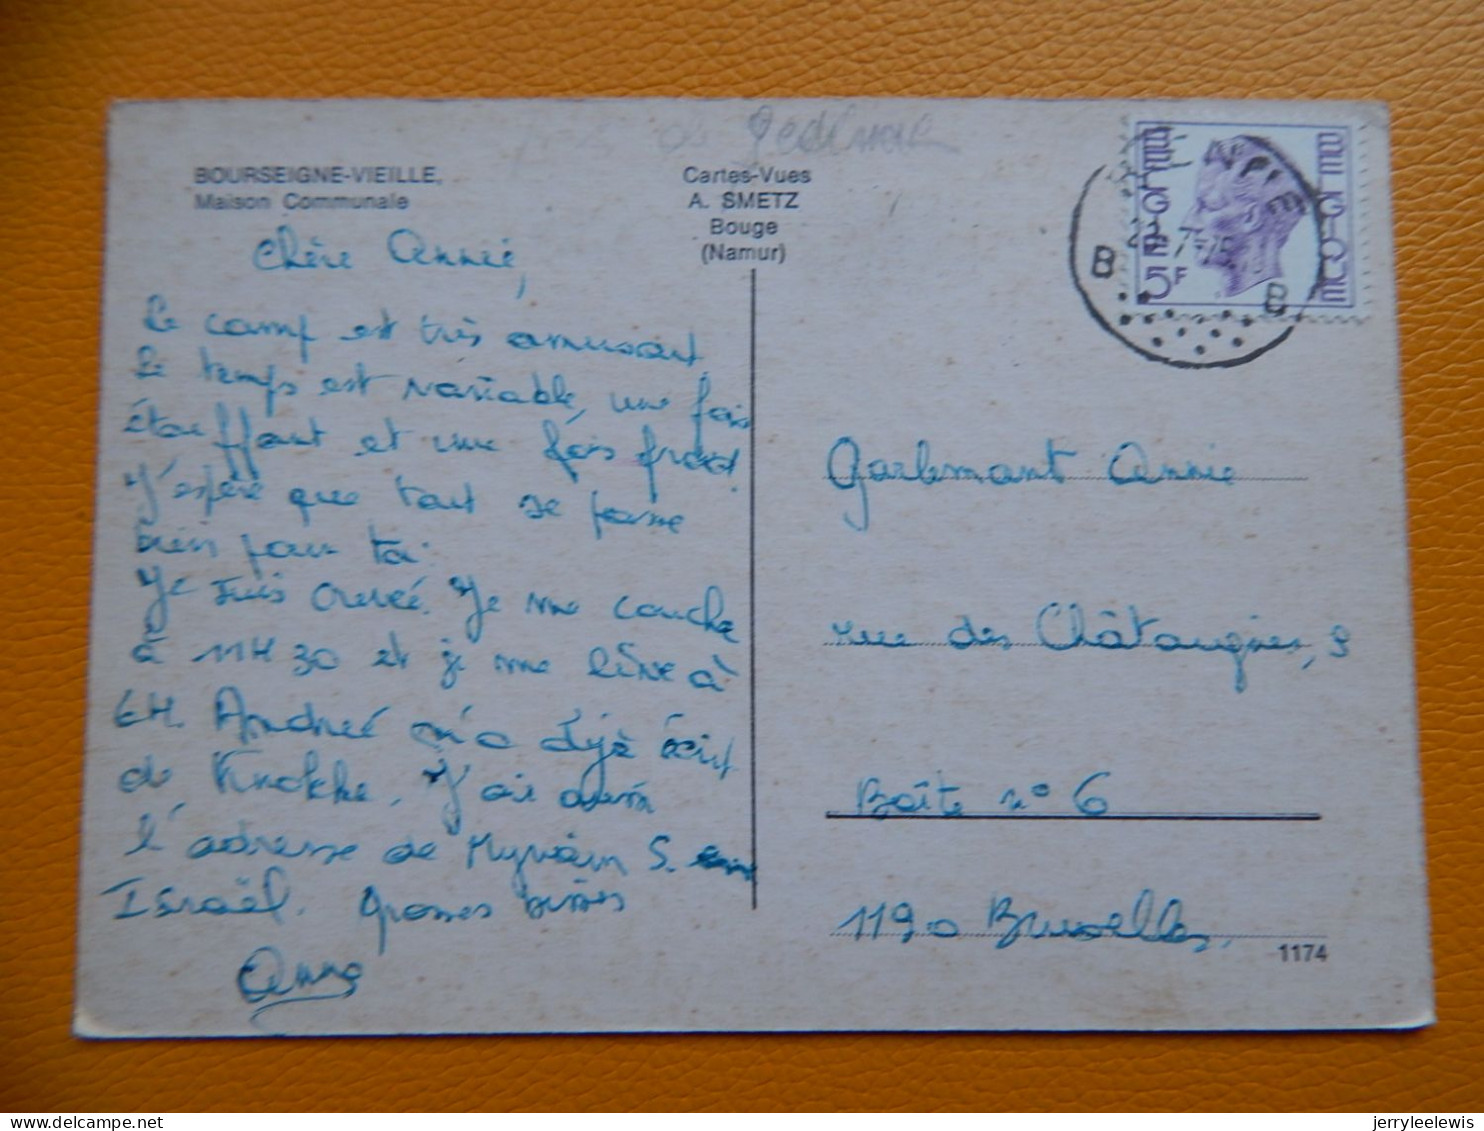 de Gedinne
BOURSEIGNE-VIEILLE,
Maison Communale
Cartes-Vues
A. SMETZ
Bouge
(Namur)
BELGIQUE
BELGIE
5F
B B
Chère Annie,
Le camp est très amusant.
Le temps est variable, une fois
étouffant et une fois froid.
J'espère que tout se passe
bien pour toi.
Je suis crevée. Je me couche
à 11H30 et je me lève à
6H. Andrée m'a déjà écrit
de Knokke. J'ai aussi
l'adresse de Myriam S. en
Israël. Grosses bises
Anne
Garlemant Annie
rue des Châtaignes,
Boîte n° 6
1190 Bruxelles.
1174
jerryleelewis